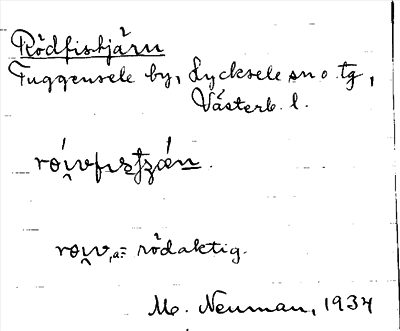 Rödfiskjärn
Tuggensele by, Lycksele sn o. tg,
Västerb. l.
rói̯vfɪsʈʐæ̀n.
roi̯v,a = rödaktig.
M. Neuman, 1937